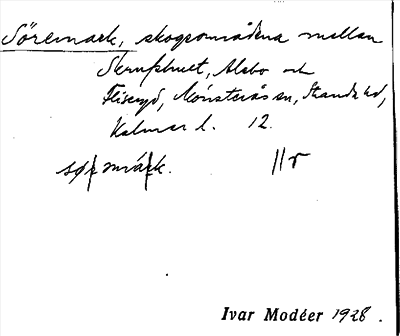 Söremark, skogsområdena mellan
Skruphuet, Alsbo och
Fliseryd, Mönsterås sn, Stranda hd,
Kalmar l. 12.
sø̨rmárk. // r
Ivar Modéer 1928.